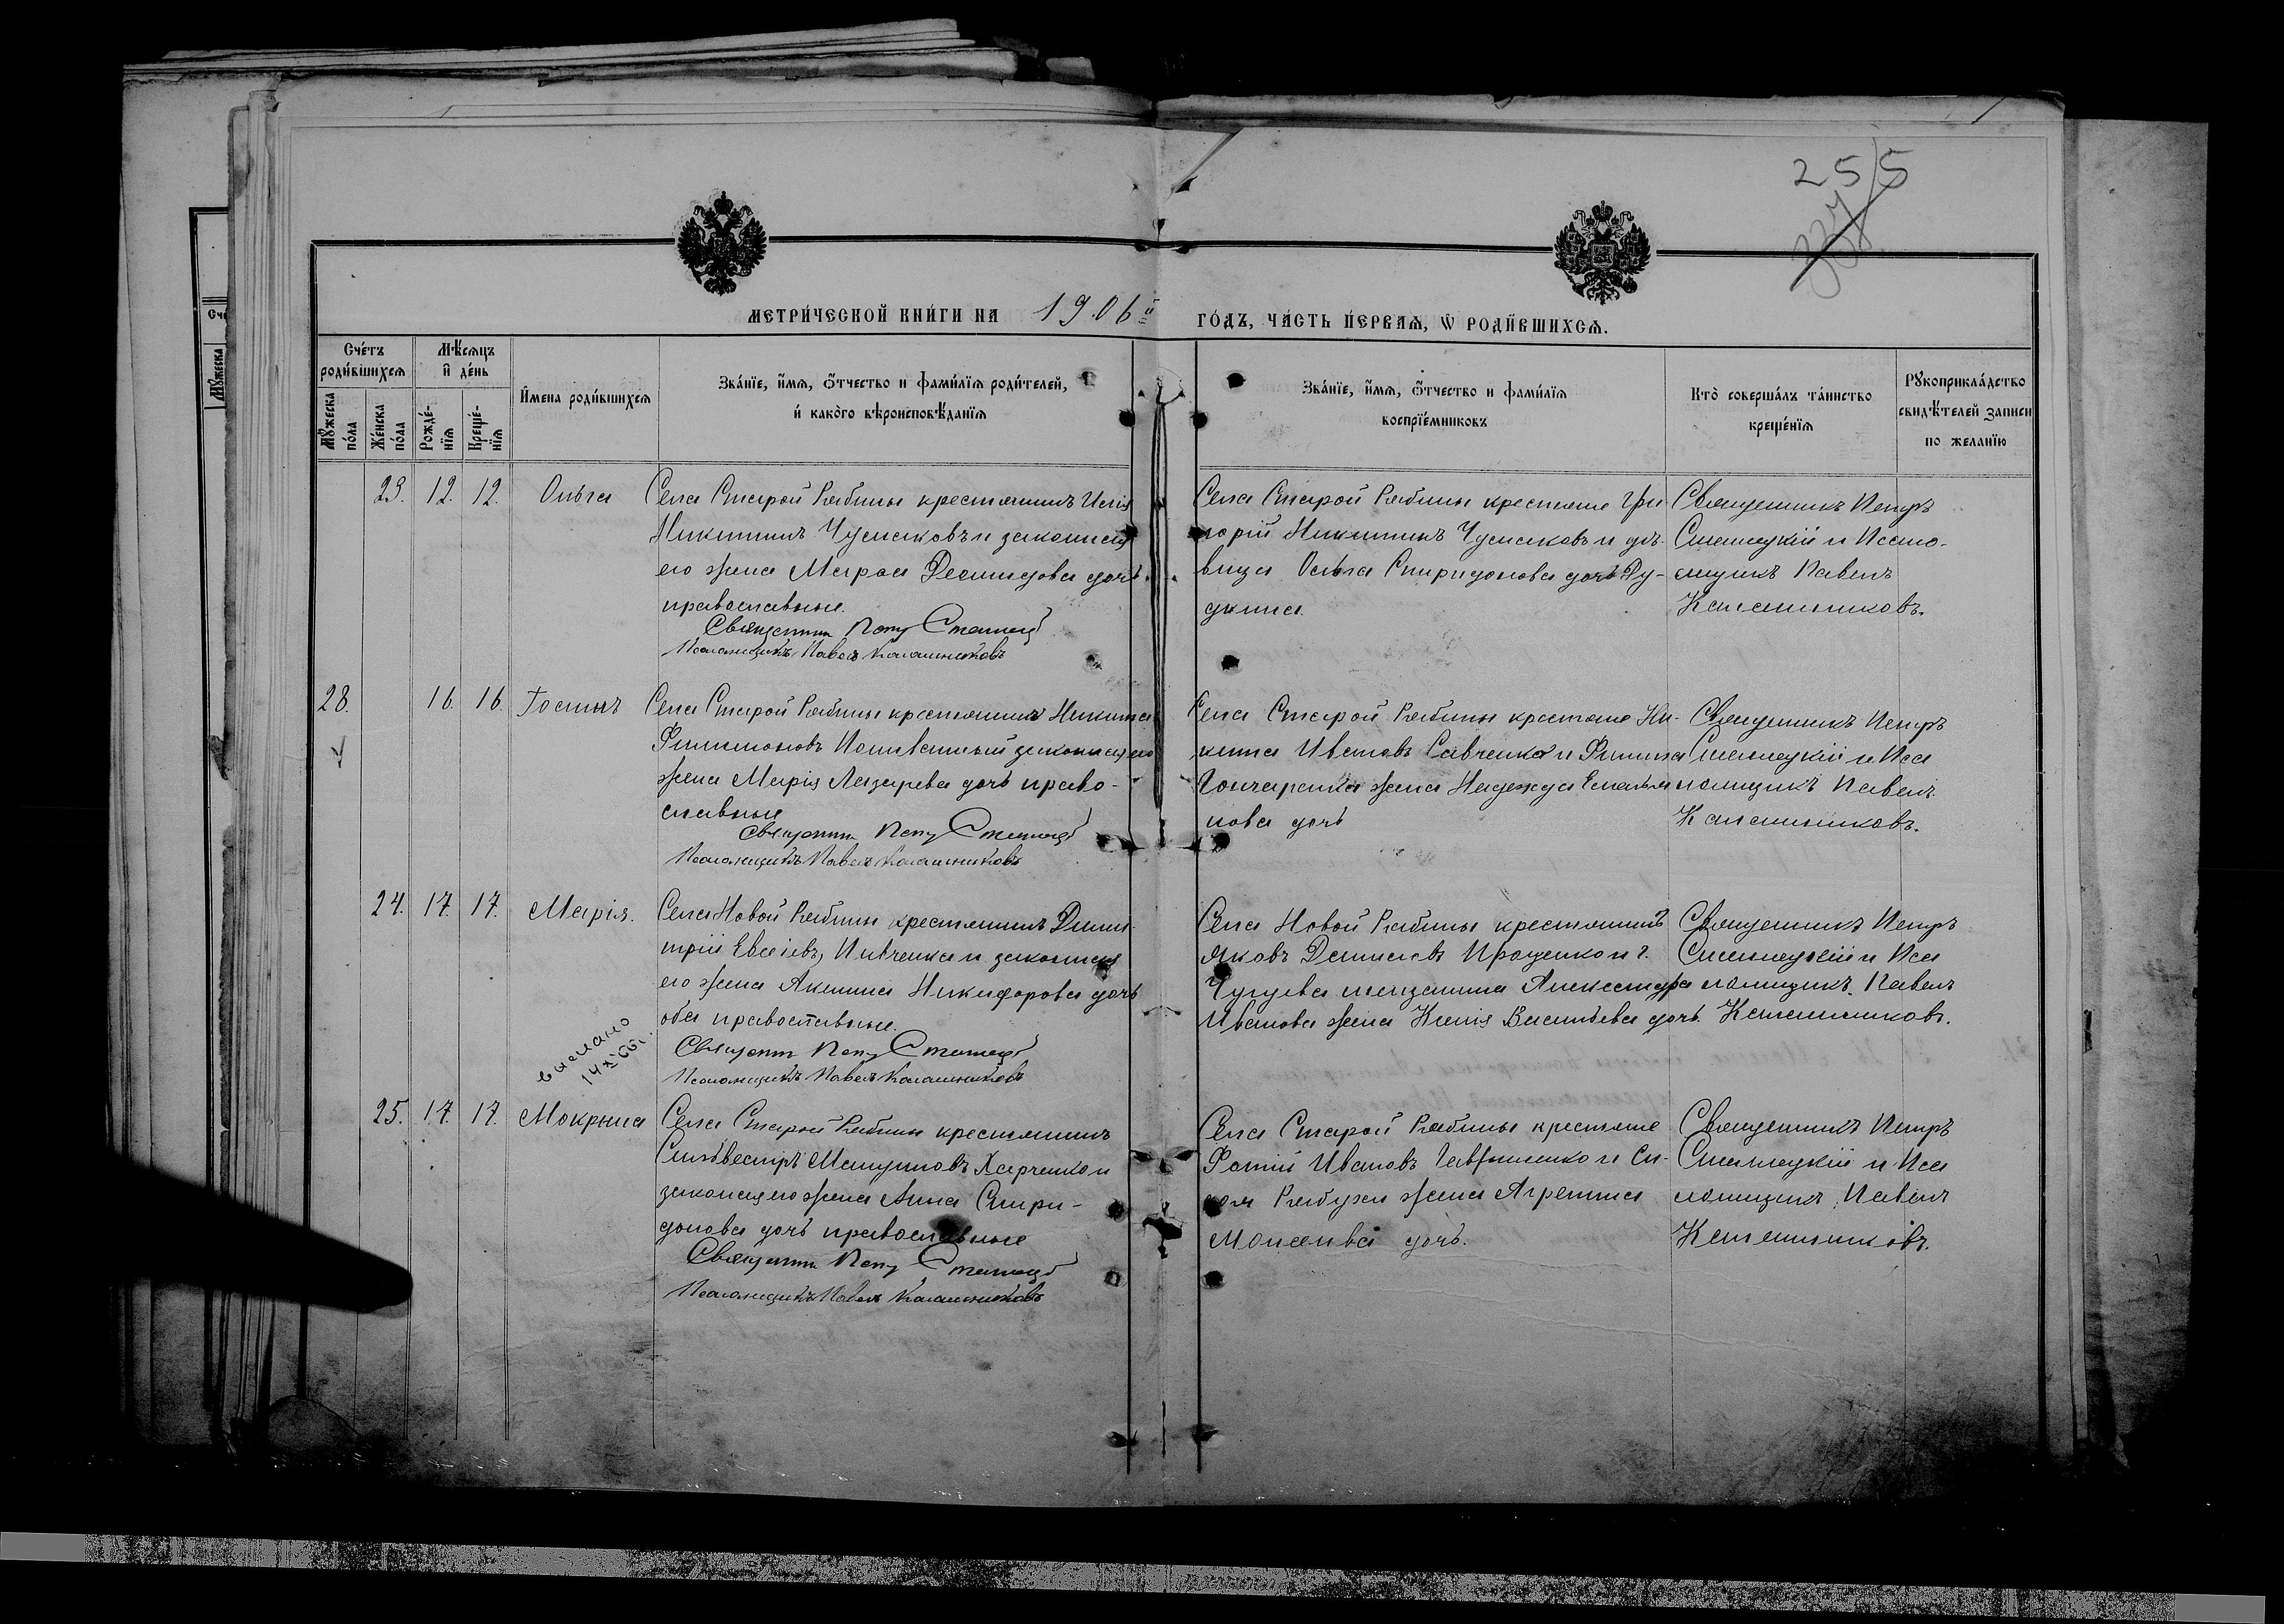 25/5
МЕТРИ́ЧЕСКОЙ КНИ́ГИ НА 1906й ГО́ДЪ, ЧА́СТЬ ПЕ́РВАЯ, Ѡ РОДИ́ВШИХСЯ.
Сче́тъ роди́вшихся
Мꙋ́жеска по́ла
Же́нска по́ла
Мѣ́сяцъ и де́нь
Рожде́нїя
Креще́нїя
И́мена роди́вшихся
Зва́нїе, и́мя, ѻ́тчество и фами́лїя роди́телей,
и како́го вѣроисповѣ́данїя
Зва́нїе, и́мя, ѻ́тчество и фами́лїя
воспрїе́мниковъ
Кто̀ соверша́лъ та́инство
креще́нїя
Рꙋкоприкла́дство
свидѣ́телей записи
по жела́нїю
23. 12. 12. Ольга
Села Старой Рябины крестьянинъ
Никитинъ Чумаковъ и законная
его жена Марѳа Демидова дочь
православные.
Священникъ Петръ
Псаломщикъ Павелъ Калашниковъ
Села Старой Рябины крестьяне Гри-
горій Никитинъ Чумаковъ и дѣ-
вица Ольга Спиридонова дочь Ду-
дкина.
Священникъ Петръ
и Псало-
мщикъ Павелъ
Калашниковъ.
28. 16. 16.
Села Старой Рябины крестьянинъ Никита
Филимоновъ законная его
жена Марія Лазарева дочь право-
славные
Священникъ Петръ
Псаломщикъ Павелъ Калашниковъ
Села Старой Рябины крестьяне Ни-
кита Ивановъ Савченко и Филиппа
Гончаренка жена Надежда Емелья
нова дочь
Священникъ Петръ
и Пса
ломщикъ Павелъ
Калашниковъ.
24. 17. 17. Марія.
Села Новой Рябины крестьянинъ Дими-
трій Пивченко и законная
его жена Акилина Никифорова дочь
оба православные.
Священникъ Петръ
Псаломщикъ Павелъ Калашниковъ
Села Новой Рябины крестьянинъ
Яковъ Даниловъ Проценко и г.
Чугуева мещанина Александра
Иванова жена Ксенія Васильева дочь.
Священникъ Петръ
и Пса
ломщикъ Павелъ
Калашниковъ.
25. 17. 17. Мокрина
Села Старой Рябины крестьянинъ
Сильвестръ Харченко и
законная его жена Анна Спири-
донова дочь православные
Священникъ Петръ
Псаломщикъ Павелъ Калашниковъ
Села Старой Рябины крестьяне
Фотій Ивановъ Гавриленко и Си-
дора Рябухи жена Агрепина
Моисеива дочь.
Священникъ Петръ
и Пса
ломщикъ Павелъ
Калашниковъ.